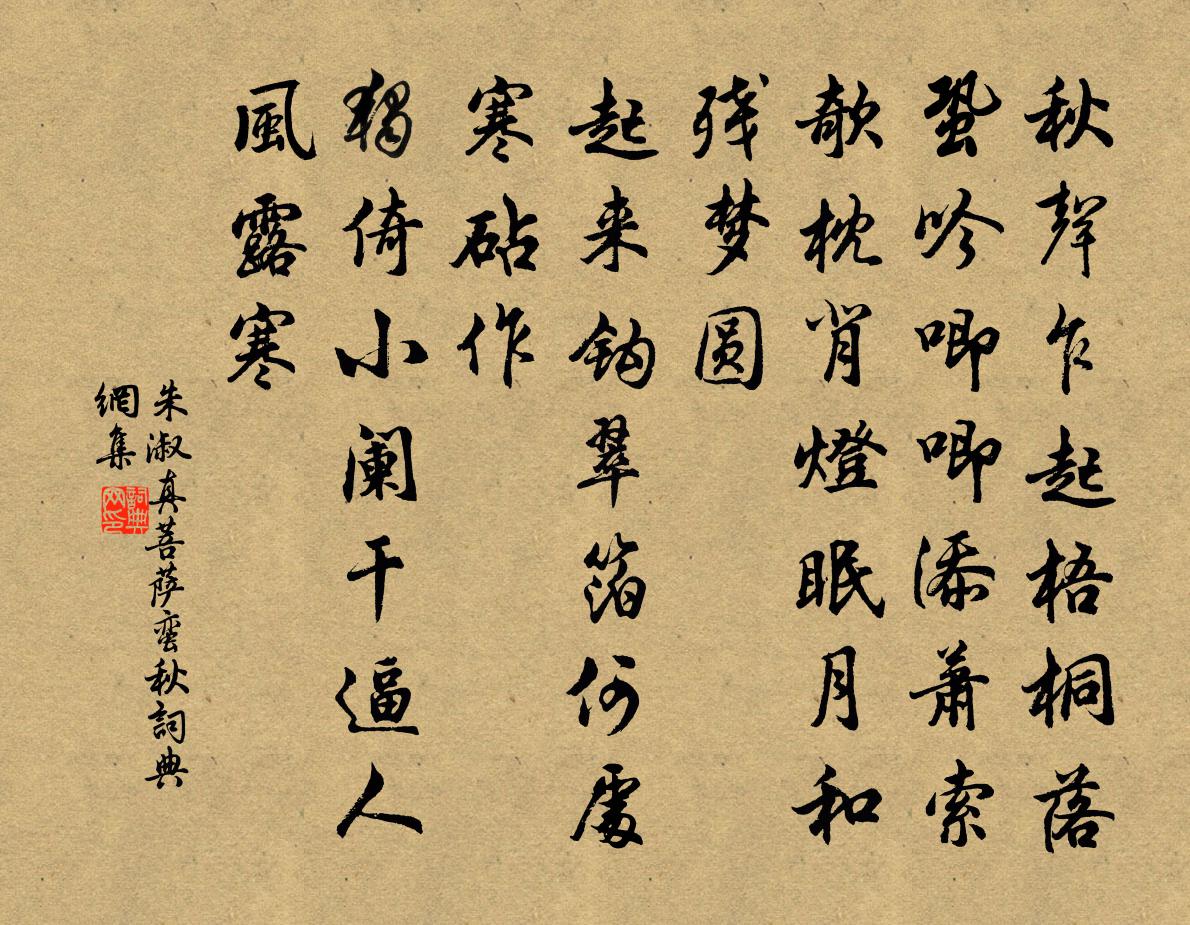 秋聲乍起梧桐落
蛩吟唧唧添萧索
欹枕背燈眠月和
残梦圆
起来鈎翠箔何處
寒砧作
獨倚小阑干逼人
風露寒
朱淑真菩萨蛮秋詞典
網集
詞典
网印